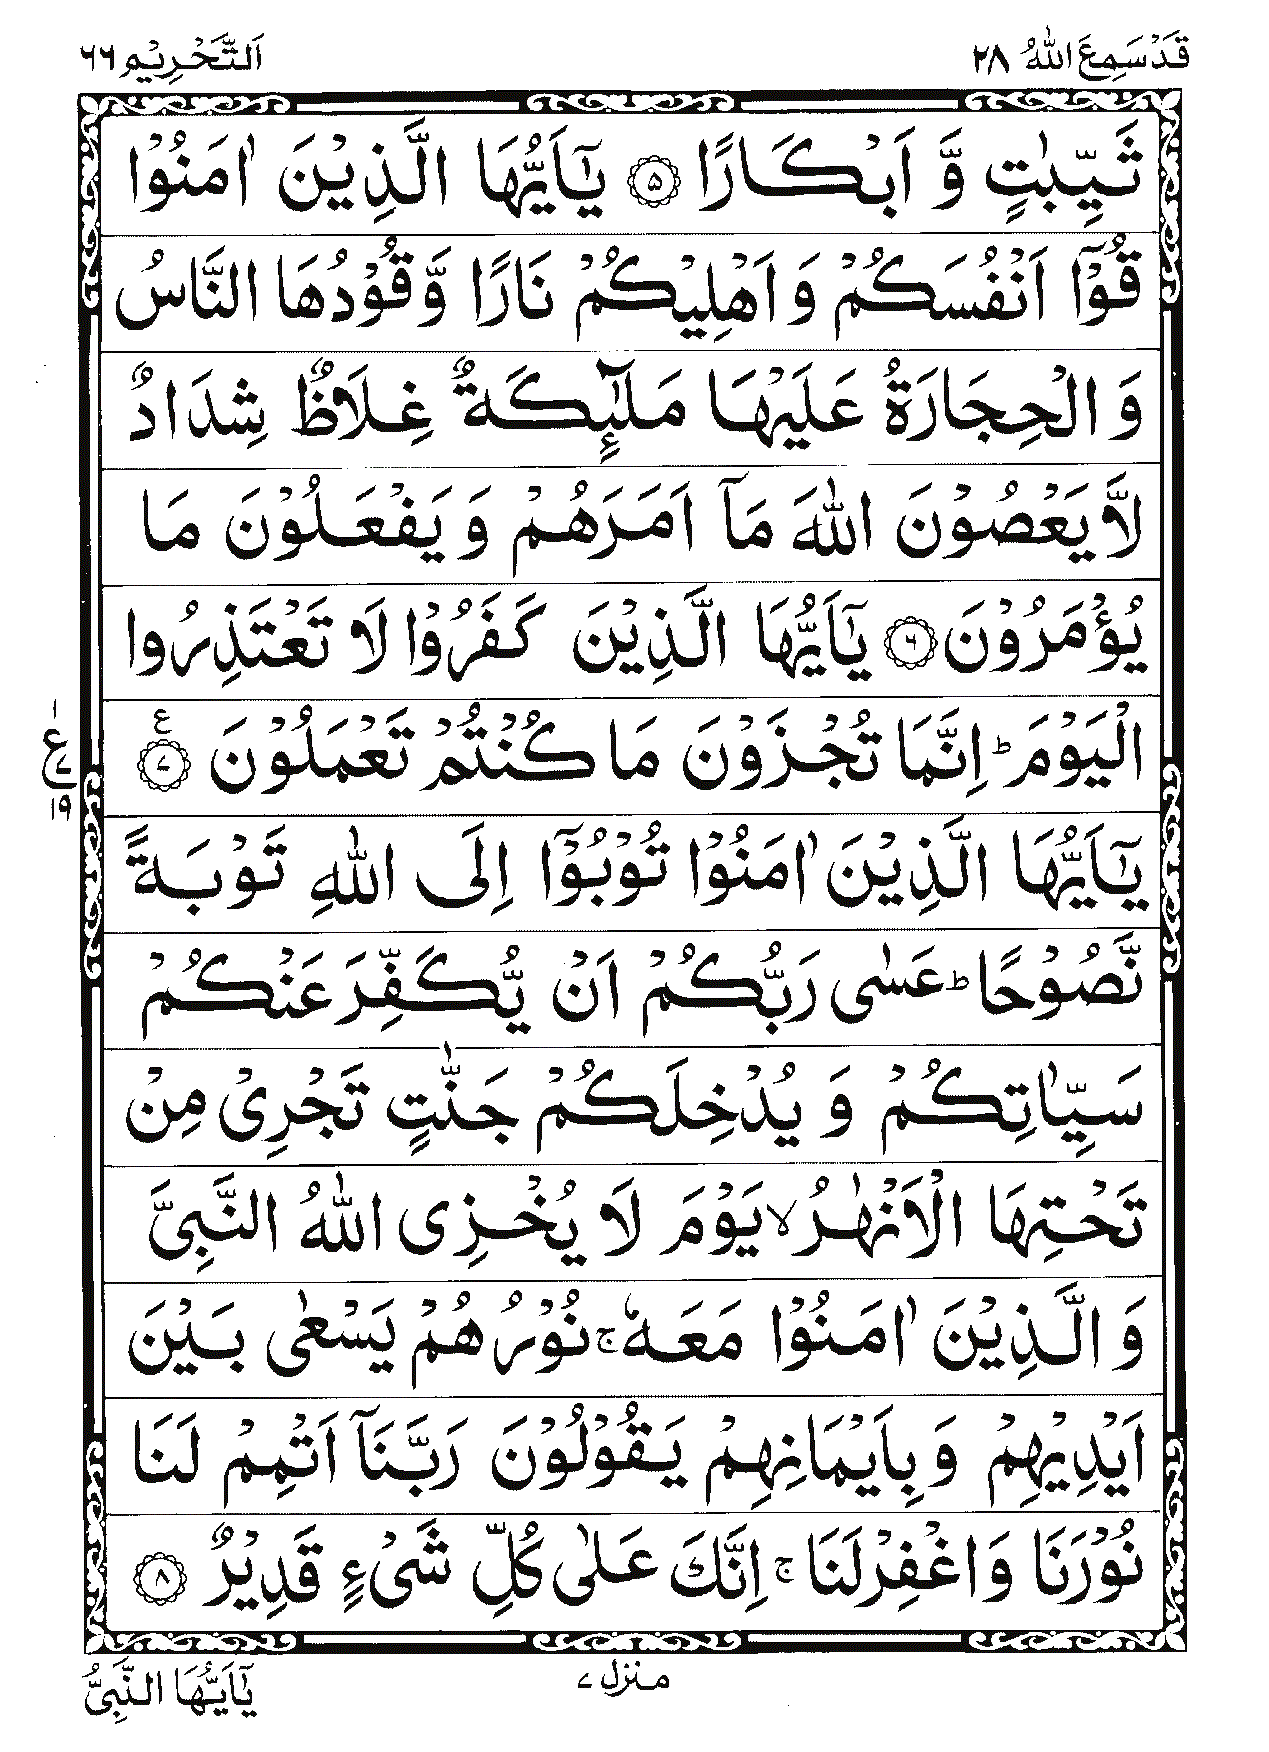 قَدْ سَمِعَ اللّٰهُ ٢٨
اَلتَّحْرِيْم ٦٦
ثَيِّبٰتٍ وَّ اَبْكَارًا ۝٥ يٰۤاَيُّهَا الَّذِيْنَ اٰمَنُوْا
قُوْۤا اَنْفُسَكُمْ وَ اَهْلِيْكُمْ نَارًا وَّقُوْدُهَا النَّاسُ
وَ الْحِجَارَةُ عَلَيْهَا مَلٰٓئِكَةٌ غِلَاظٌ شِدَادٌ
لَّا يَعْصُوْنَ اللّٰهَ مَاۤ اَمَرَهُمْ وَ يَفْعَلُوْنَ مَا
يُؤْمَرُوْنَ ۝٦ يٰۤاَيُّهَا الَّذِيْنَ كَفَرُوْا لَا تَعْتَذِرُوا
الْيَوْمَ ؕ اِنَّمَا تُجْزَوْنَ مَا كُنْتُمْ تَعْمَلُوْنَ ۝٧ ع
١
ع ٧
١٩
يٰۤاَيُّهَا الَّذِيْنَ اٰمَنُوْا تُوْبُوْۤا اِلَى اللّٰهِ تَوْبَةً
نَّصُوْحًا ؕ عَسٰى رَبُّكُمْ اَنْ يُّكَفِّرَ عَنْكُمْ
سَيِّاٰتِكُمْ وَ يُدْخِلَكُمْ جَنّٰتٍ تَجْرِيْ مِنْ
تَحْتِهَا الْاَنْهٰرُ ۙ يَوْمَ لَا يُخْزِى اللّٰهُ النَّبِىَّ
وَ الَّذِيْنَ اٰمَنُوْا مَعَهٗ ۚ نُوْرُهُمْ يَسْعٰى بَيْنَ
اَيْدِيْهِمْ وَ بِاَيْمَانِهِمْ يَقُوْلُوْنَ رَبَّنَاۤ اَتْمِمْ لَنَا
نُوْرَنَا وَ اغْفِرْ لَنَا ۚ اِنَّكَ عَلٰى كُلِّ شَىْءٍ قَدِيْرٌ ۝٨
منزل ٧
يٰۤاَيُّهَا النَّبِىُّ